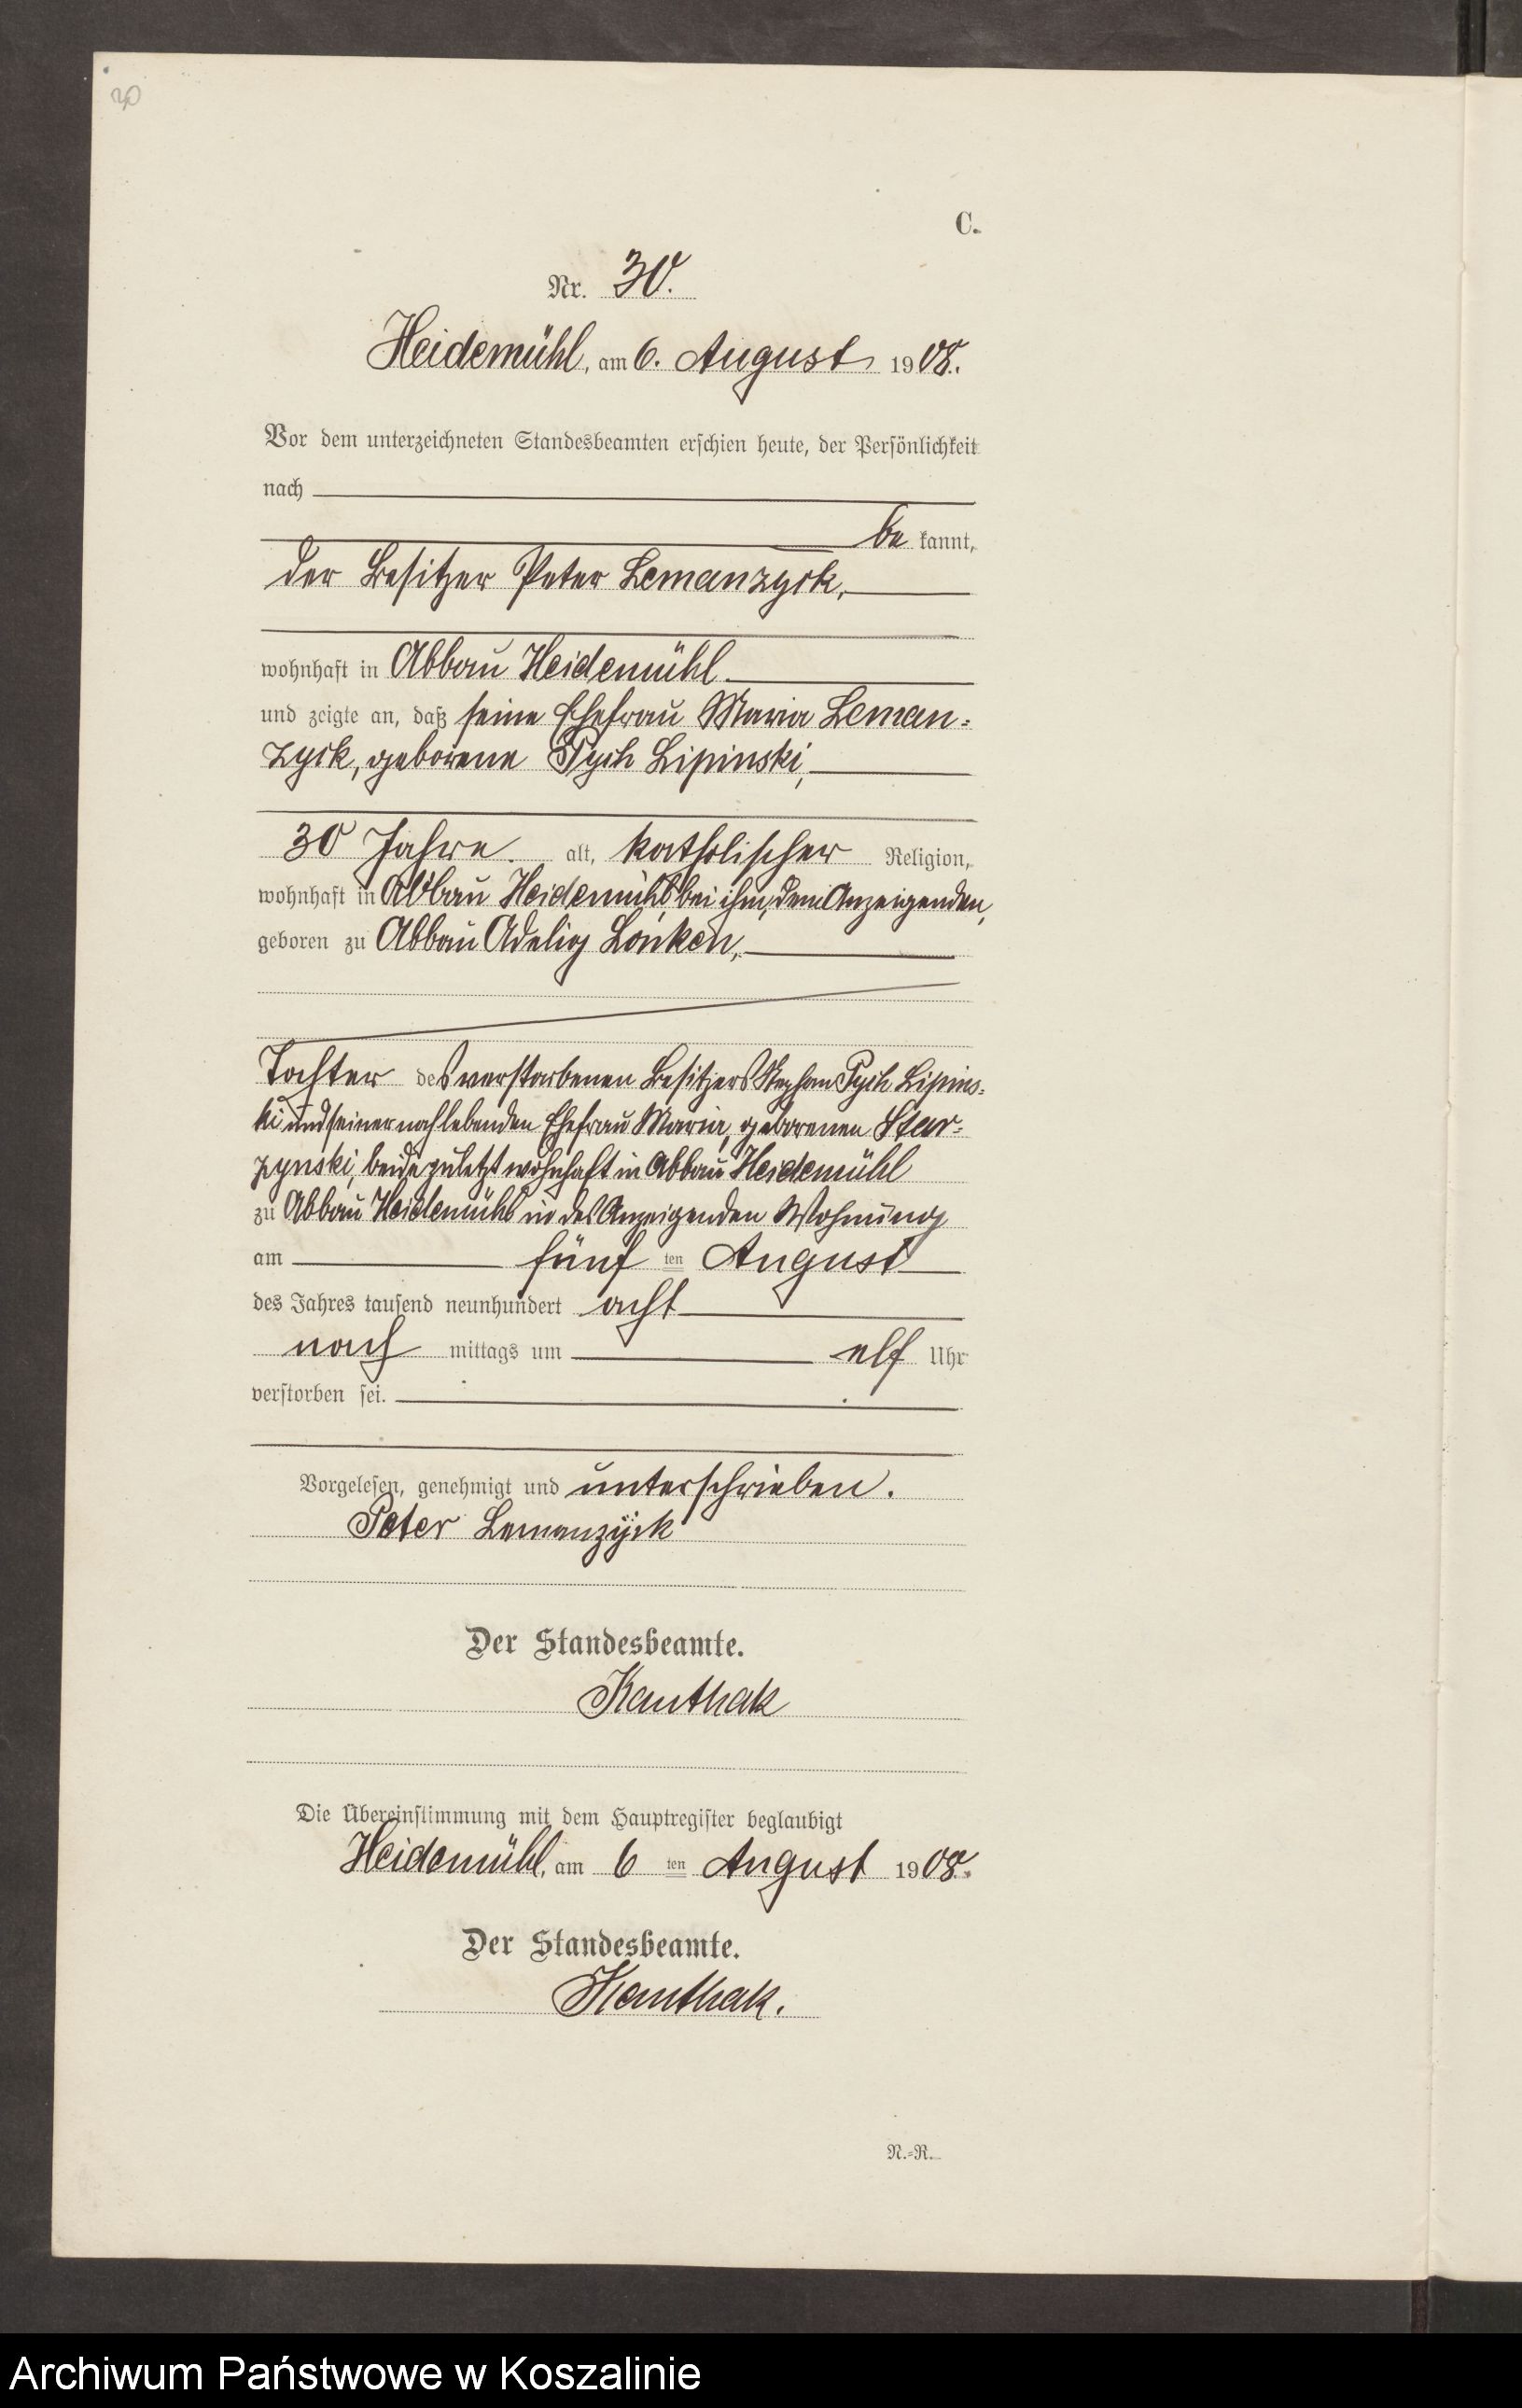 30
C.
Nr. 30.
Heidemühl, am 6. August 1908.
Vor dem unterzeichneten Standesbeamten erschien heute, der Persönlichkeit
nach
be kannt,
der Besitzer Peter Lemanzyk,
wohnhaft in Abbau Heidemühl
und zeigte an, daß seine Ehefrau Maria Leman=
zyk, geborene Pych Lipinski,
30 Jahre alt, katholischer Religion,
wohnhaft in Abbau Heidemühl bei ihm, dem Anzeigenden,
geboren zu Abbau Adelig Lonken,
Tochter des verstorbenen Besitzers Stephan Pych Lipins=
ki und seiner noch lebenden Ehefrau Maria, geborenen Star=
zynski, beide zuletzt wohnhaft in Abbau Heidemühl
zu Abbau Heidemühl in des Anzeigenden Wohnung
am fünf ten August
des Jahres tausend neunhundert acht
nach mittags um elf Uhr
verstorben sei.
Vorgelesen, genehmigt und unterschrieben.
Peter Lemanzyk
Der Standesbeamte.
Kauthak
Die Übereinstimmung mit dem Hauptregister beglaubigt
Heidemühl, am 6 ten August 1908.
Der Standesbeamte.
Kauthak.
N.=R.
Archiwum Państwowe w Koszalinie